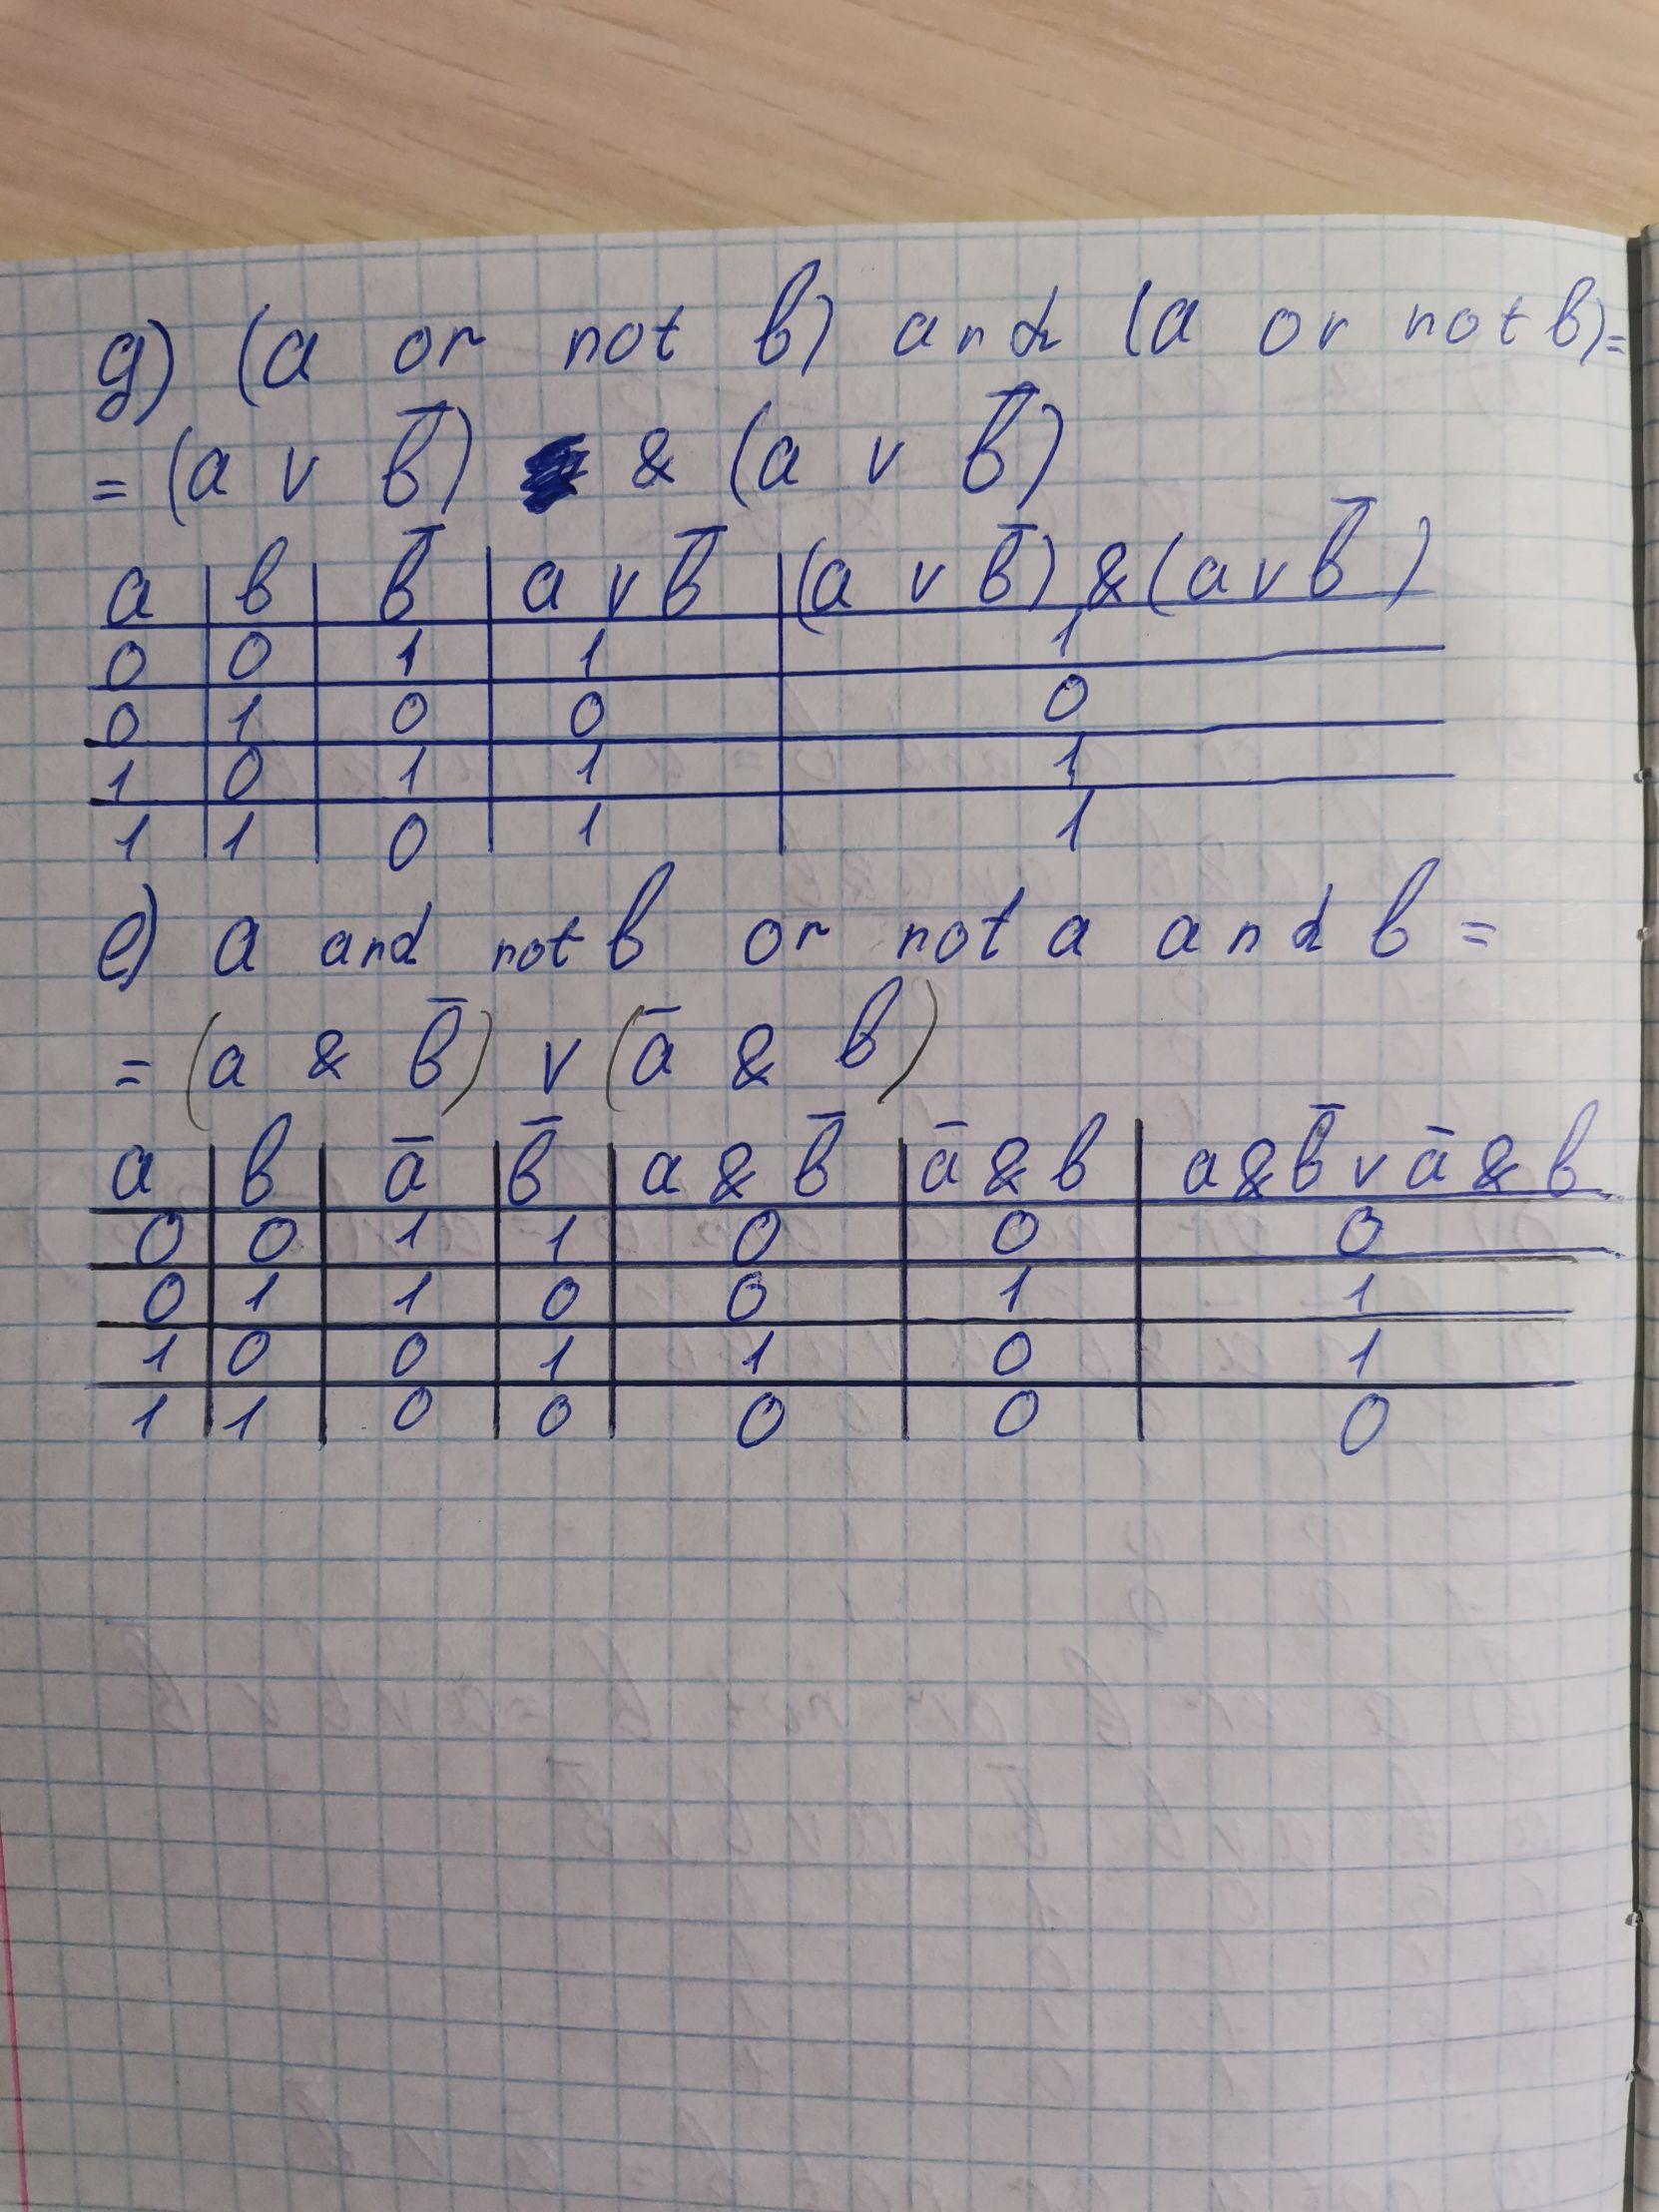 д) (a or not b) and (a or not b)=
= (a v b̅) & (a v b̅)
a b b̅ a v b̅ (a v b̅) & (a v b̅)
0 0 1 1 1
0 1 0 0 0
1 0 1 1 1
1 1 0 1 1
е) a and not b or not a and b =
= (a & b̅) v (a̅ & b)
a b a̅ b̅ a & b̅ a̅ & b a & b̅ v a̅ & b
0 0 1 1 0 0 0
0 1 1 0 0 1 1
1 0 0 1 1 0 1
1 1 0 0 0 0 0